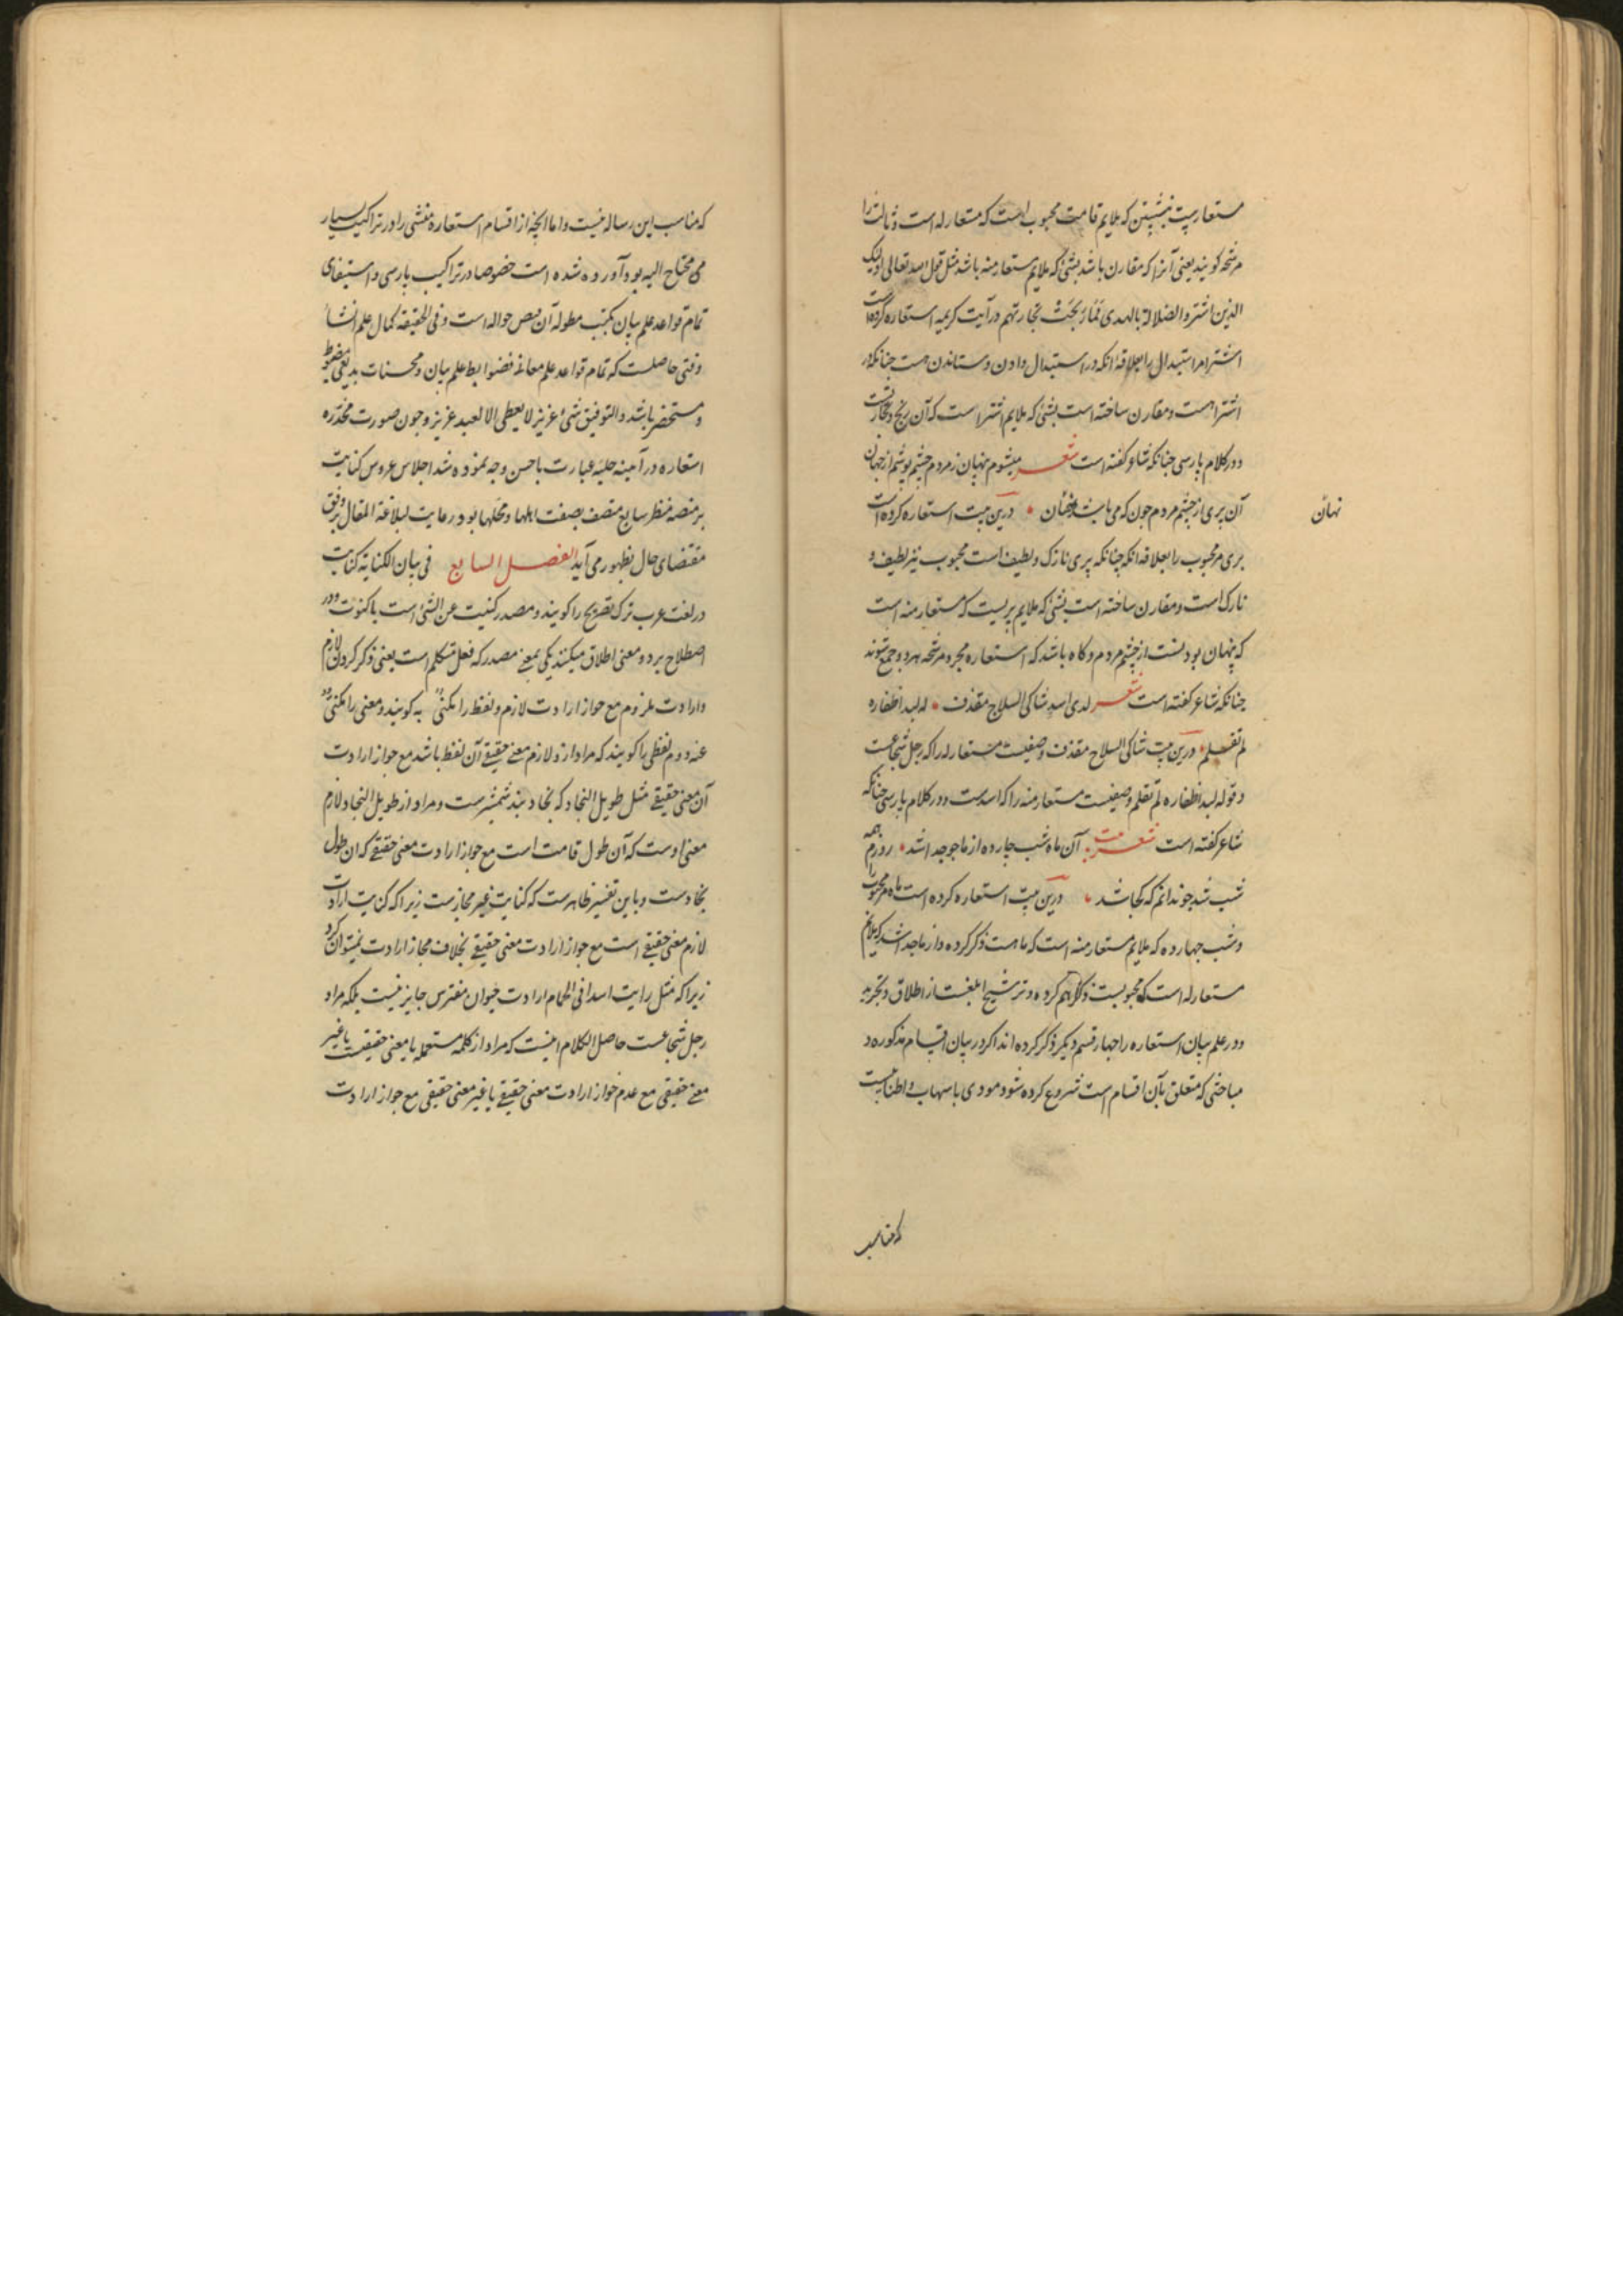 مستعاریت بنشین که ملایم قامت محبوب است که مستعارله است و ثالث را
مرشحه کویند یعنی آنرا که مقارن باشد بشئ که ملایم مستعارمنه باشد مثل قول الله تعالی اولیک
الذین اشتروا الضلالة بالهدی فمَا رَبحَتْ تجارتهم در آیت کریمه استعاره کرده است
اشترا مر استبدال را بعلاقۀ انکه در استبدال دادن و ستاندن هست چنانکه در
اشترا هست و مقارن ساخته است بشئ که ملایم اشترا است که آن ربح و تجارتست
و در کلام پارسی چنانکه شاعر کفته است شعر میشوم پنهان ز مردم چشم پوشم از جهان
آن پری از چشم مردم چون که می باشد نهان درین بیت استعاره کرده است
نهان
پری مر محبوب را بعلاقه انکه چنانکه پری نازک و لطیف است محبوب نیز لطیف و
نازک است و مقارن ساخته است بشئ که ملایم پریست که مستعار منه است
که پنهان بودنست از چشم مردم و کاه باشد که استعاره مجرد و مرشحه هر دو جمع شوند
چنانکه شاعر کفته است شعر لدی اسدٍ شاکی السلاح مقذف له لبد اظفاره
لم تقلم درین بیت شاکی السلاح مقذف وصفیست مستعار له را که رجل شجاعست
و قوله لبد اظفاره لم تقلم وصفیست مستعارمنه را که اسدست و در کلام پارسی چنانکه
شاعر کفته است شعر بیت آن ماه شب چارده از ما چو جدا شد روزم همه
شب شد چو ندانم که کجا شد درین بیت استعاره کرده است ماه مر محبوب را
و شب چهارده که ملایم مستعارمنه است که ماهست ذکر کرده و از ما جدا شد که ملایم
مستعارله است که محبوبست ذکر هم کرده و ترشیح ابلغست از اطلاق و تجرید
و در علم بیان استعاره را چهار قسم دیکر ذکر کرده اند اکر در بیان اقسام مذکوره و
مباحثی که متعلق بآن اقسام است شروع کرده شود مودی باسهاب و اطنابیست
که مناسب
که مناسب این رساله نیست و اما انچه از اقسام استعاره منشی را در تراکیب بسیار
می محتاج الیه بود آورده شده است خصوصا در تراکیب پارسی و استیفای
تمام قواعد علم بیان بکتب مطوله آن فن حواله است و فی الحقیقه کمال علم انشا
وقتی حاصلست که تمام قواعد علم معانی و ضوابط علم بیان و محسنات بدیعی مضبوط
و مستحضر باشد و التوفیق شئ عزیز لا یعطی الا لعبد عزیز و چون صورت مخدّره
استعاره در آیینه جلیۀ عبارت باحسن وجه نموده شد اجلاس عروس کنایت
بر منصه منظر سایع متصف بصفت اهلها و محلها بود و رعایت لبلاغة المقال بر وفق
مقتضای حال بظهور می آید الفصل السابع فی بیان الکنایة کنایت
در لغت عرب ترک تصریح را کویند و مصدر کنیت عن الشئ است یا کنوت و در
اصطلاح بر دو معنی اطلاق میکنند یکی بمعنی مصدر که فعل متکلم است یعنی ذکر کردن لازم
و ارادت ملزوم مع جواز ارادت لازم و لفظ را مکنیٌ به کویند و معنی را مکنیٌ
عنه و دوم لفظی را کویند که مراد ازو لازم معنی حقیقی آن لفظ باشد مع جواز ارادت
آن معنی حقیقی مثل طویل النجاد که نجاد بند شمشیرست و مراد از طویل النجاد لازم
معنی اوست که آن طول قامت است مع جواز ارادت معنی حقیقی که آن طول
نجادست و باین تفسیر ظاهرست که کنایت غیر مجازست زیرا که کنایت ارادت
لازم معنی حقیقی است مع جواز ارادت معنی حقیقی بخلاف مجاز ارادت نمیتوان کرد
زیرا که مثل رایت اسدا فی الحمام ارادت حیوان مفترس جایز نیست بلکه مراد
رجل شجاعست حاصل الکلام اینست که مراد از کلمه مستعمله یا معنی حقیقیست یا غیر
معنی حقیقی مع عدم جواز ارادت معنی حقیقی یا غیر معنی حقیقی مع جواز ارادت